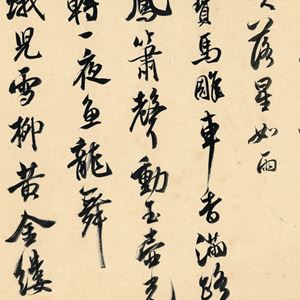 落星如雨
寶馬雕車香滿路
鳳簫聲動玉壺光
轉一夜魚龍舞
蛾兒雪柳黄金縷